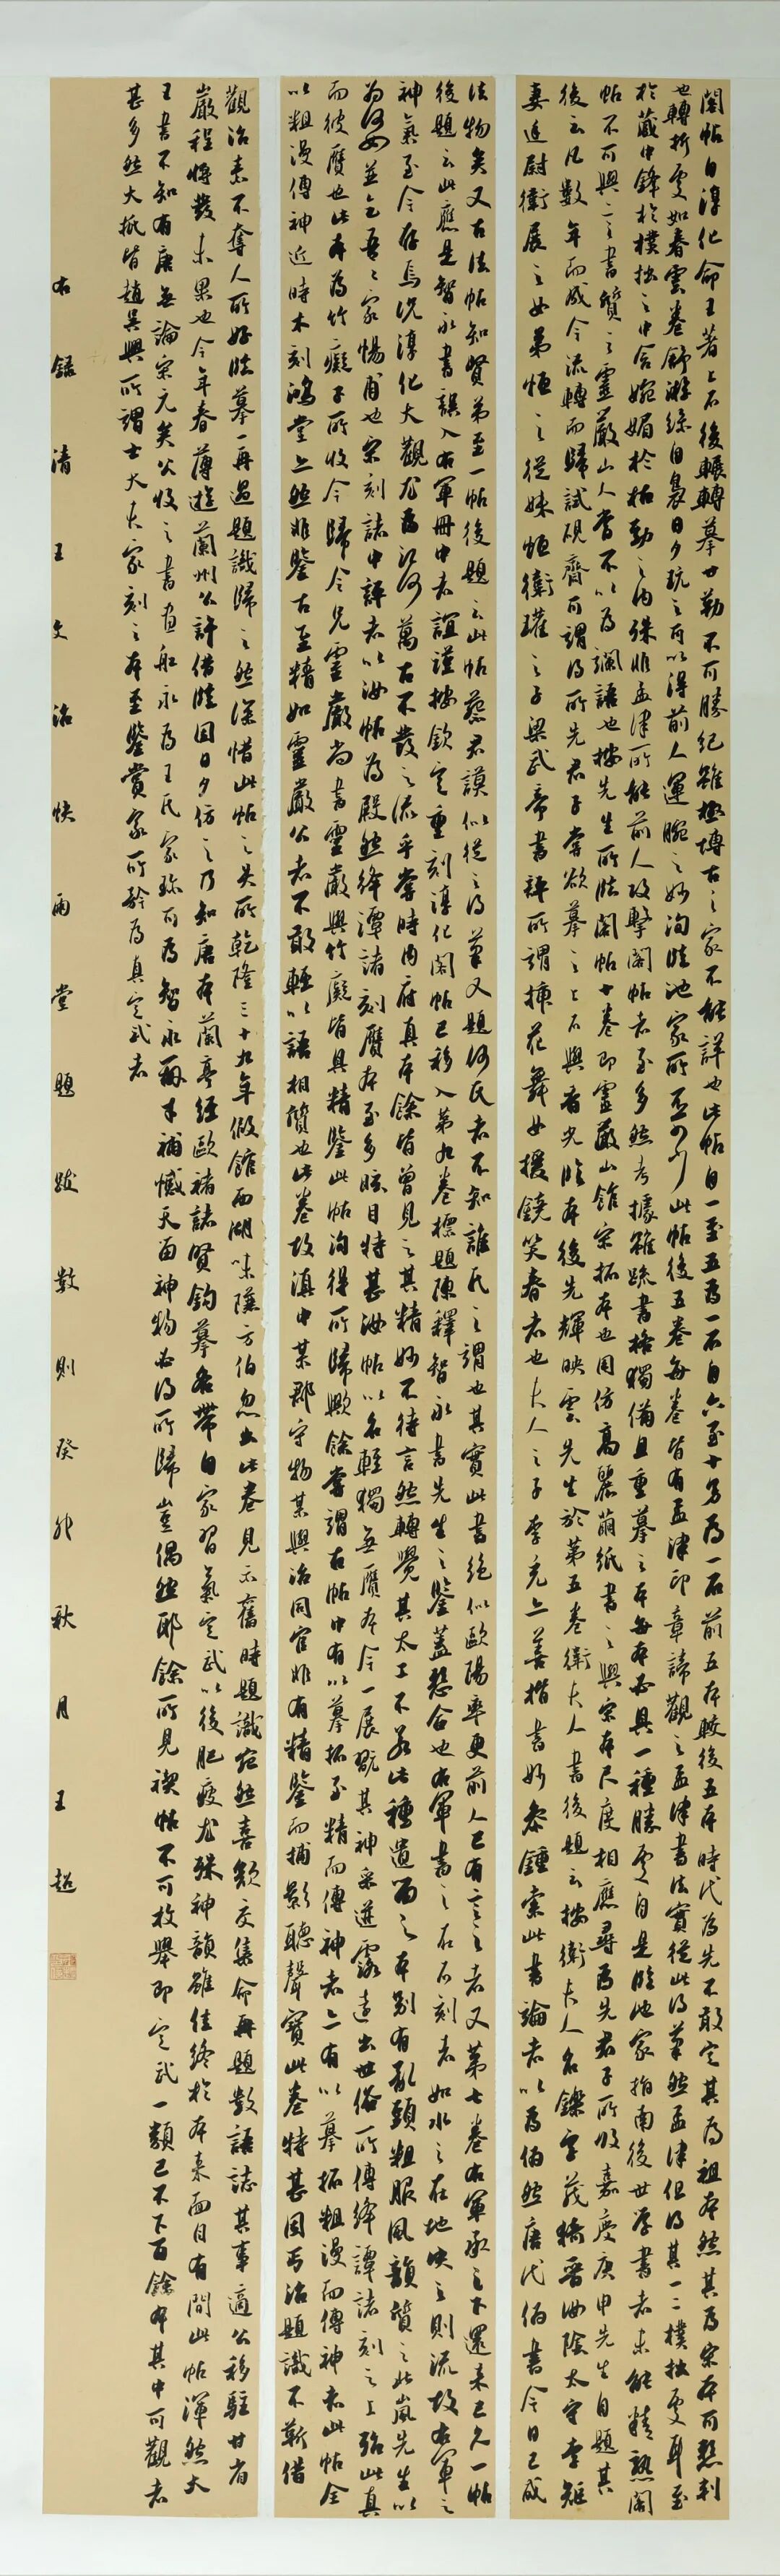 閣帖自淳化命王著上石後輾轉摹廿勒不可勝紀雖極博古之家不能詳也此帖自一至五為一石自六至十另為一石前五本較後五本時代為先不敢定其為祖本然其為宋本可懸判
也轉折處如春雲卷舒游絲自裊日夕玩之可以得前人運腕之妙洵臨池家所 此帖後五卷每卷皆有孟津印章諦觀之孟津書法實從此得筆然孟津但得其一二樸拙處耳至
於藏中鋒於樸拙之中含婉媚於枯勁之內殊非孟津所能前人攻擊閣帖者至多然考據雖疏書格獨備且重摹之本每本必具一種勝處自是臨池家指南後世學書者未能精熟閣
帖不可與言書質之靈巖山人當不以為讕語也按先生所臨閣帖十卷即靈巖山館宋拓本也因仿高麗繭紙書之與宋本尺度相應尋為先君子所收嘉慶庚申先生自題其
後云凡數年而成今流轉而歸試硯齋可謂得所先君子嘗欲摹之上石與看光臨本後先輝映云先生於第五卷衛夫人書後題云按衛夫人名鑠字茂猗晉汝陰太守李矩
妻廷尉衛展之女弟恒之從妹恒衛瓘之子梁武帝書評所謂插花舞女援鏡笑春者也夫人之子李充亦善楷書妙參鍾索此書論者以為偽然唐代偽書今日已成
法物矣又古法帖知賢弟至一帖後題云此帖蔡君謨似從之得筆又題何氏者不知誰氏之謂也其實此書絕似歐陽率更前人已有言之者又第七卷右軍承之下還來已久一帖
後題云此應是智永書誤入右軍冊中者誼謹按欽定重刻淳化閣帖已移入第九卷標題陳釋智永書先生之鑒蓋懸合也右軍書之在石刻者如水之在地決之則流故右軍之
神氣至今存焉況淳化大觀尤為江河萬古不廢之流乎嘗時內府真本餘皆曾見之其精妙不待言然轉覺其太工不若此種遺留之本別有亂頭粗服風韻質之此嵐先生以
為何如並乞吾家惕甫也宋刻諸中評者以汝帖為殿然絳潭諸刻贗本至多眩目特甚汝帖以名輕獨無贗本今一展翫其神采遒露遠出世俗所傳絳譚諸刻之上殆此真
而彼贗也此本為竹癡子所收今歸令兄靈巖尚書靈巖與竹癡皆具精鑒此帖洵得所歸歟餘嘗謂古帖中有以摹拓至精而傳神者亦有以摹拓粗漫而傳神者此帖全
以粗漫傳神近時木刻鴻堂亦然非鑒古至精如靈巖公者不敢輕以語相質也此卷故滇中某郡守物某與治同官非有精鑒而捕影聽聲寶此卷特甚因丐治題識不靳借
觀治素不奪人所好臨摹一再過題識歸之然深惜此帖之失所乾隆三十九年假館西湖味隱方伯忽出此卷見示舊時題識宛然喜歎交集命再題數語誌其事適公移駐甘省
嚴程將發未果也今年春薄遊蘭州公許借臨因日夕仿之乃知唐本蘭亭經歐褚諸賢鉤摹各帶自家習氣定武以後肥瘦尤殊神韻雖佳終於本來面目有間此帖渾然大
王書不知有唐無論宋元矣公收之書畫船永為王氏家珍可為智永禪本補憾天留神物必得所歸豈偶然耶餘所見禊帖不可枚舉即定武一類已不下百餘本其中可觀者
甚多然大抵皆趙吳興所謂士大夫家刻之本至鑒賞家所矜為真定武者
右錄清王文治快雨堂題跋數則癸卯秋月王超